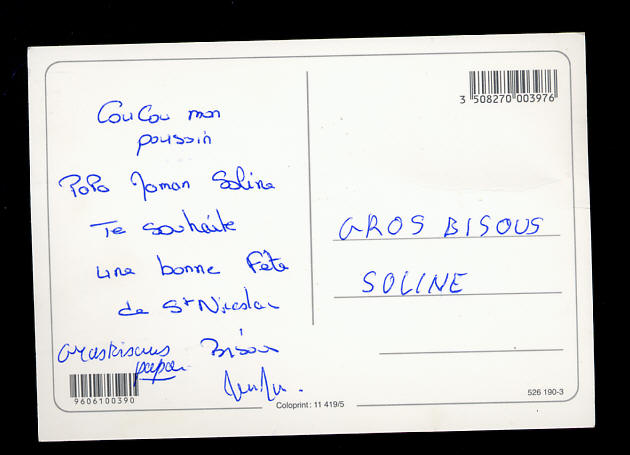 Coucou mon
poussin
Papa Maman Soline
Te souhaite
une bonne Fête
de St Nicolas
Gros Bisous Bisou
papa
GROS BISOUS
SOLINE
3 508270 003976
9606100390
Coloprint : 11 419/5
526 190-3